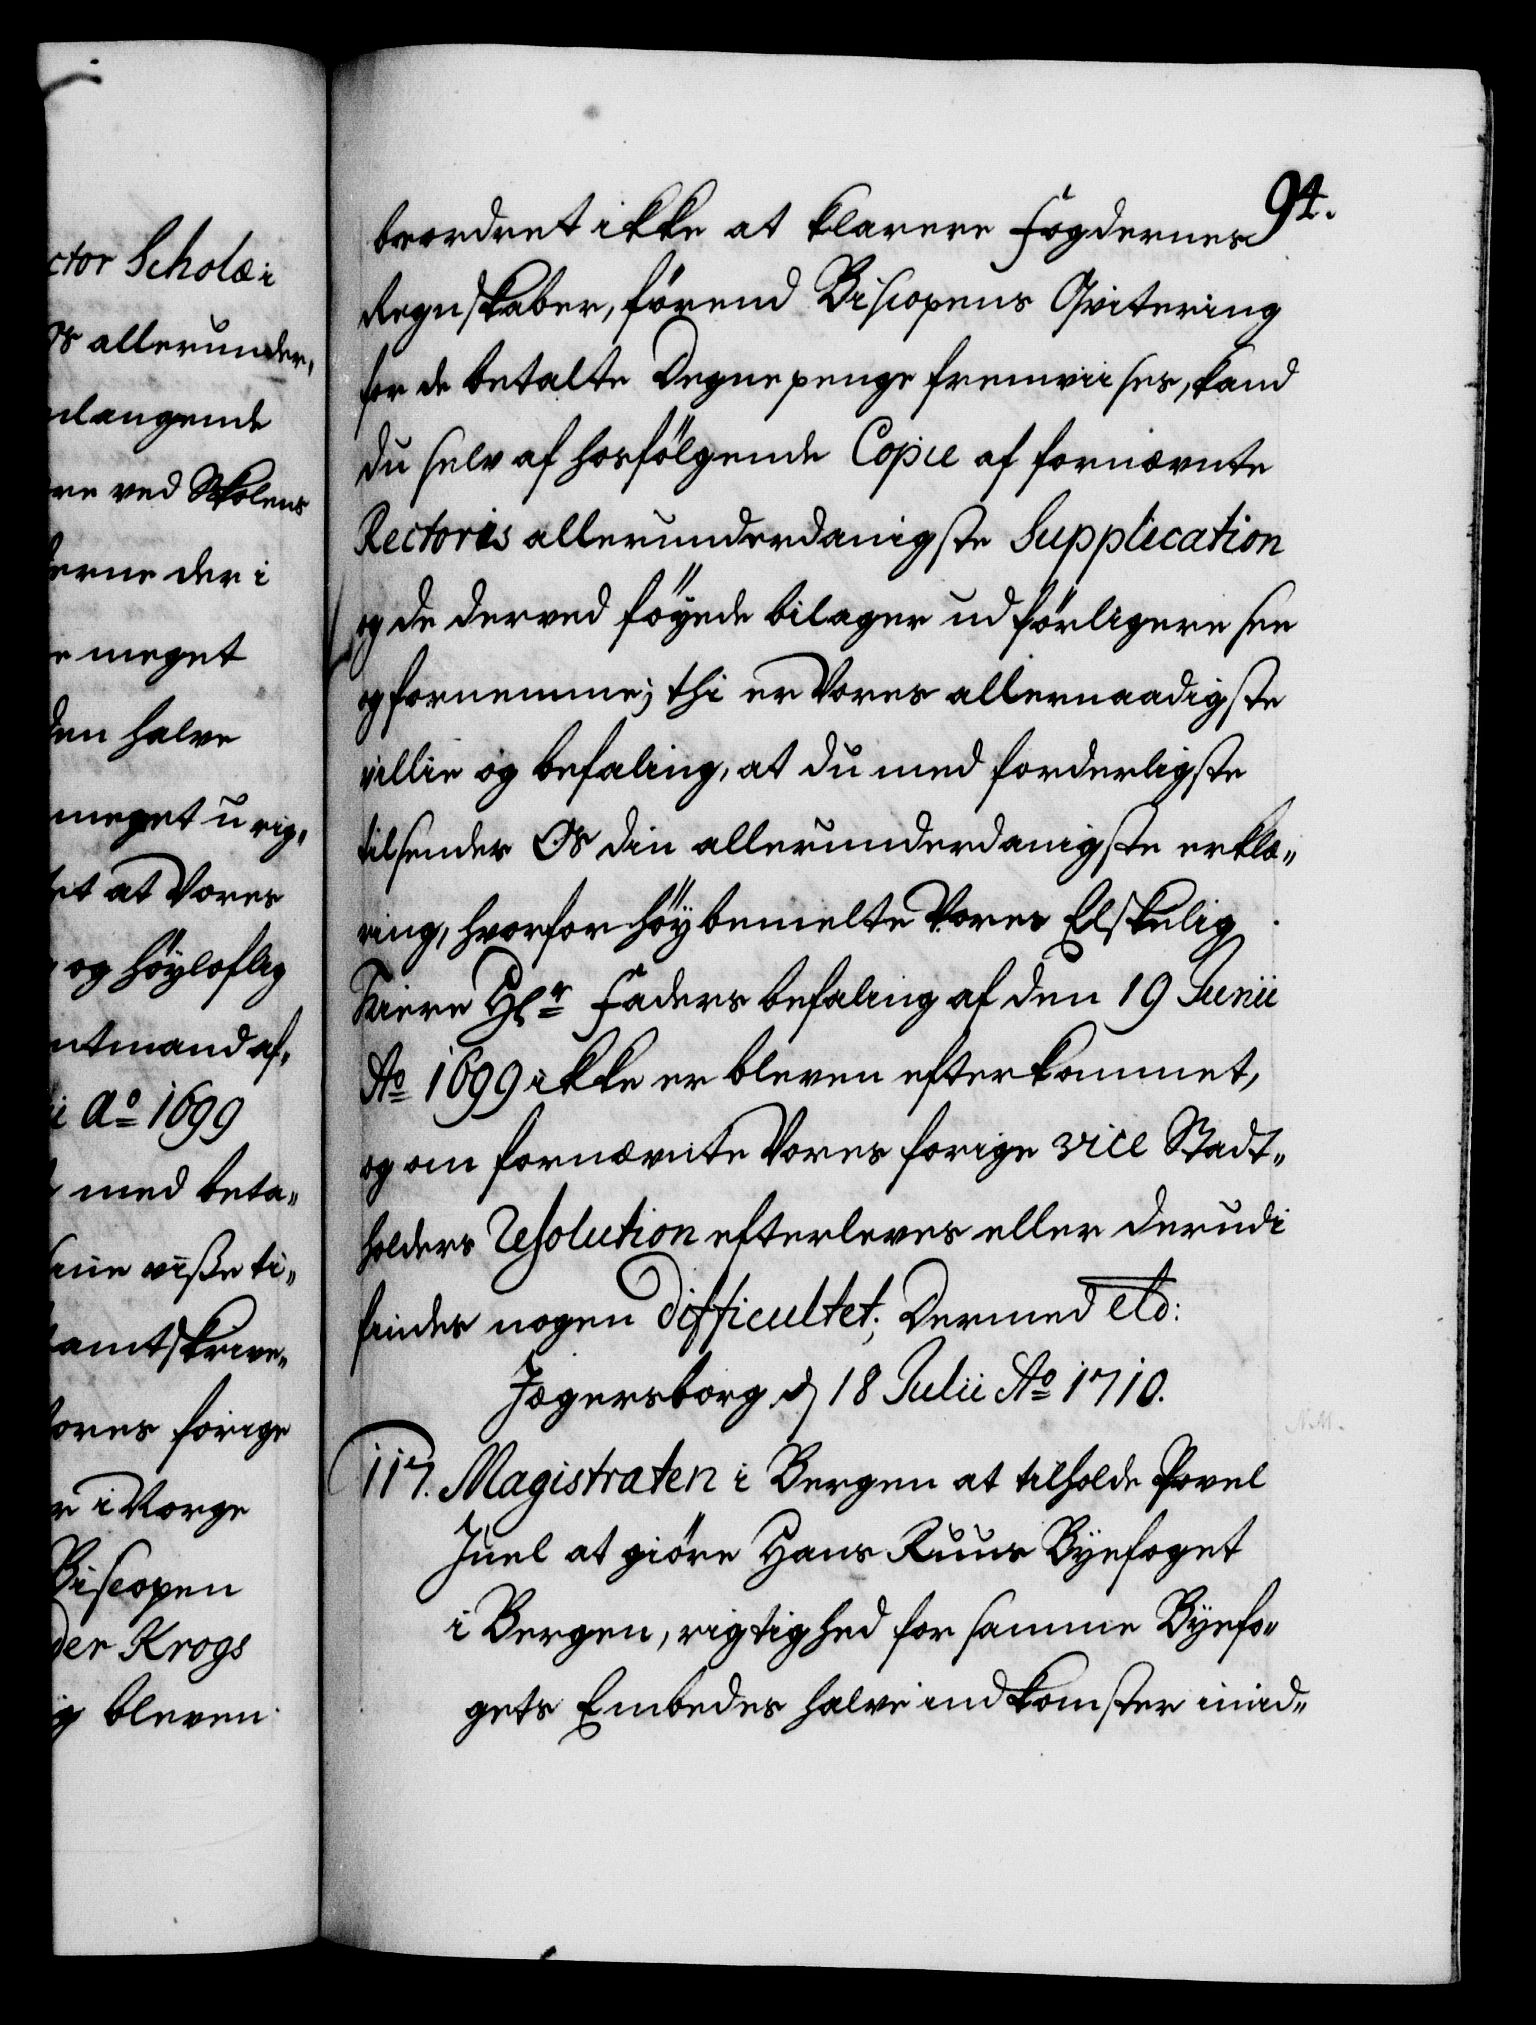 ctor Scholæ i
Os allerunder,
nlangende
re ved Skolens
erne der i
e meget
den halve
meget u rig,
et at Vores
og höyloflig
ntmand af,
ii Ao 1699
med beta„
sine viße ti„
tamtskrive„
Vores forige
r i Norge
Biscopen
der Krogs
ig bleven
94.
beordret ikke at klarere Fogdernes
Regnskaber, förend Biscopens Qvitering
for de betalte Degnepenge fremviises, kand
du selv af hosfölgende Copie af fornævnte
Rectoris allerunderdanigste Supplication
og de derved föyede bilager udförligere see
og fornemme; thi er Vores allernaadigste
villie og befaling, at du med forderligste
tilsender Os din allerunderdanigste erklæ„
ring, hvorfor höybemelte Vores Elskelig
Kiere Hr Faders befaling af den 19 Junii
Ao 1699 ikke er bleven efterkommet,
og om fornævnte Vores forige vice Stadt„
holders Resolution efterleves eller derudi
findes nogen difficultet; Dermed etc:
Jægersborg d 18 Julii Ao 1710.
117. Magistraten i Bergen at tilholde Povel
Juel at giöre Hans Ruus Byefoget
i Bergen, rigtighed for samme Byefo„
gets Embedes halve indkomster imid„